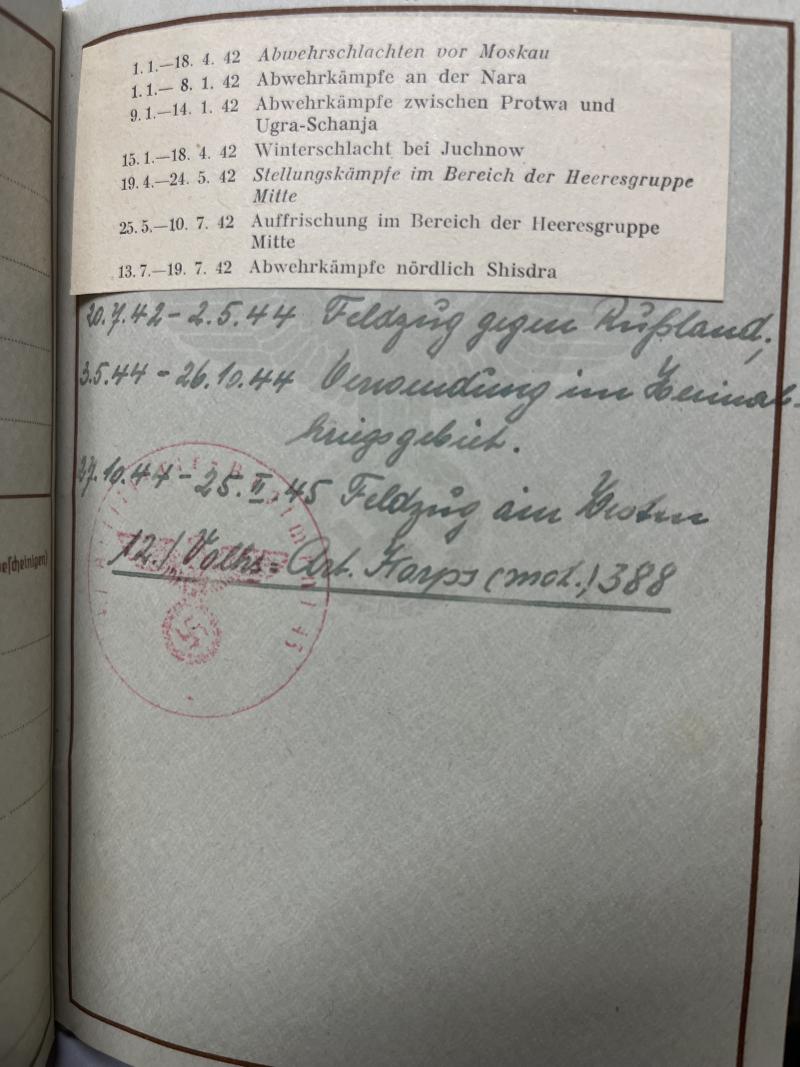 1. 1.—18. 4. 42 Abwehrschlachten vor Moskau
1. 1.— 8. 1. 42 Abwehrkämpfe an der Nara
9. 1.—14. 1. 42 Abwehrkämpfe zwischen Protwa und
Ugra-Schanja
15. 1.—18. 4. 42 Winterschlacht bei Juchnow
19. 4.—24. 5. 42 Stellungskämpfe im Bereich der Heeresgruppe
Mitte
25. 5.—10. 7. 42 Auffrischung im Bereich der Heeresgruppe
Mitte
13. 7.—19. 7. 42 Abwehrkämpfe nördlich Shisdra
20.7.42 - 2.5.44 Feldzug gegen Rußland;
3.5.44 - 26.10.44 Verwendung im Heimat-
kriegsgebiet.
27.10.44 - 25.II.45 Feldzug am Westen
12./Volks=Art. Korps (mot.) 388